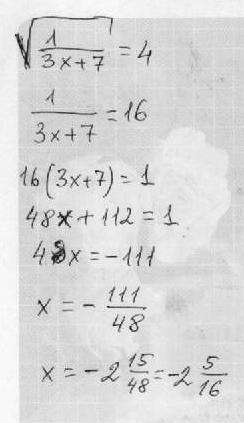 √(1/(3x+7)) = 4
1/(3x+7) = 16
16(3x+7) = 1
48x + 112 = 1
48x = -111
x = - 111/48
x = -2 15/48 = -2 5/16